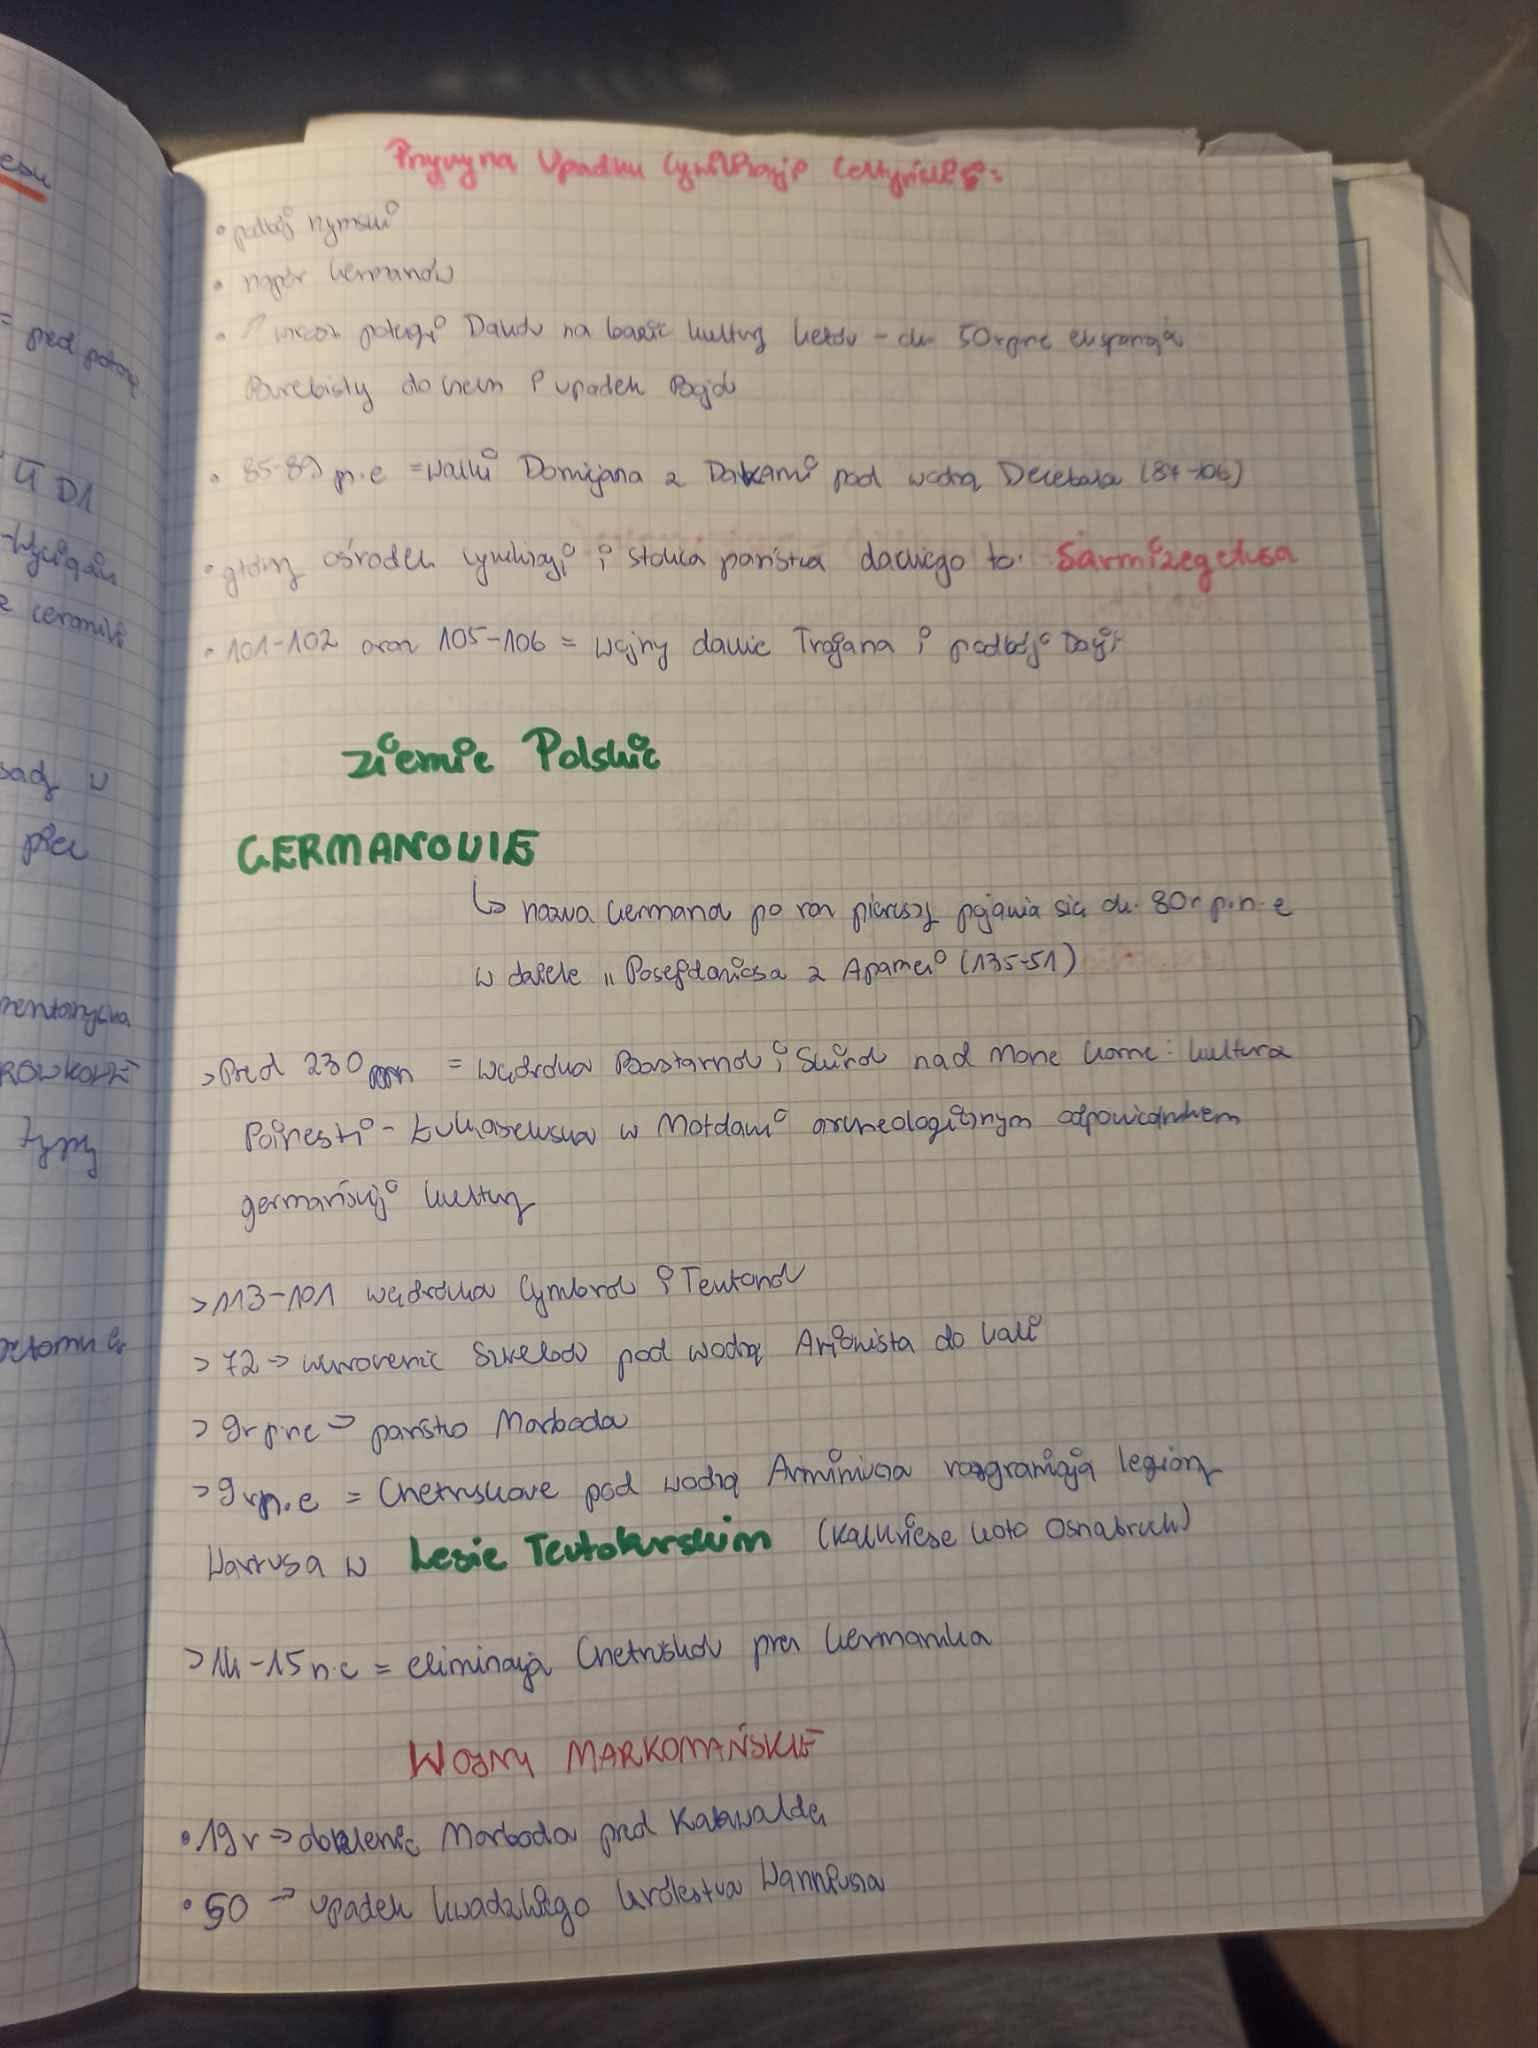 Przyczyna upadku cywilizacji celtyckiej:
• podbój rzymski
• napór Germanów
• ↑ wzrost potęgi Daków na bazie kultury Celtów – ok. 50r pne ekspansja
Burebisty do Czech i upadek Bojów
• 85-89 n.e = walki Domicjana z Dakami pod wodzą Decebala (87-106)
• główny ośrodek cywilizacji i stolica państwa dackiego to: Sarmizegetusa
• 101-102 oraz 105-106 = wojny dackie Trajana i podbój Dacji
Ziemie Polskie
GERMANOWIE
↳ nazwa Germanów po raz pierwszy pojawia się ok. 80r p.n.e
w dziele „Posejdoniosa z Apamei (135-51)
> Przed 230 = wędrówka Bastarnów i Skirów nad Morze Czarne: kultura
Poineşti - Łukaszewska w Mołdawii archeologicznym odpowiednikiem
germańskiej kultury
> 113-101 wędrówka Cymbrów i Teutonów
> 72 → wkroczenie Swebów pod wodzą Ariowista do Galii
> 9r pne → państwo Marboda
> 9r n.e = Cheruskowie pod wodzą Arminiusa rozgramiają legiony
Warrusa w Lesie Teutoburskim (Kalkriese koło Osnabruck)
> 14-15 n.e = eliminacja Cherusków przez Germanika
WOJNY MARKOMAŃSKIE
• 19r → obalenie Marboda przed Katwaldę
• 50 → upadek kwadzkiego królestwa Wanniusa
ZU DA
sady w
płec
typy